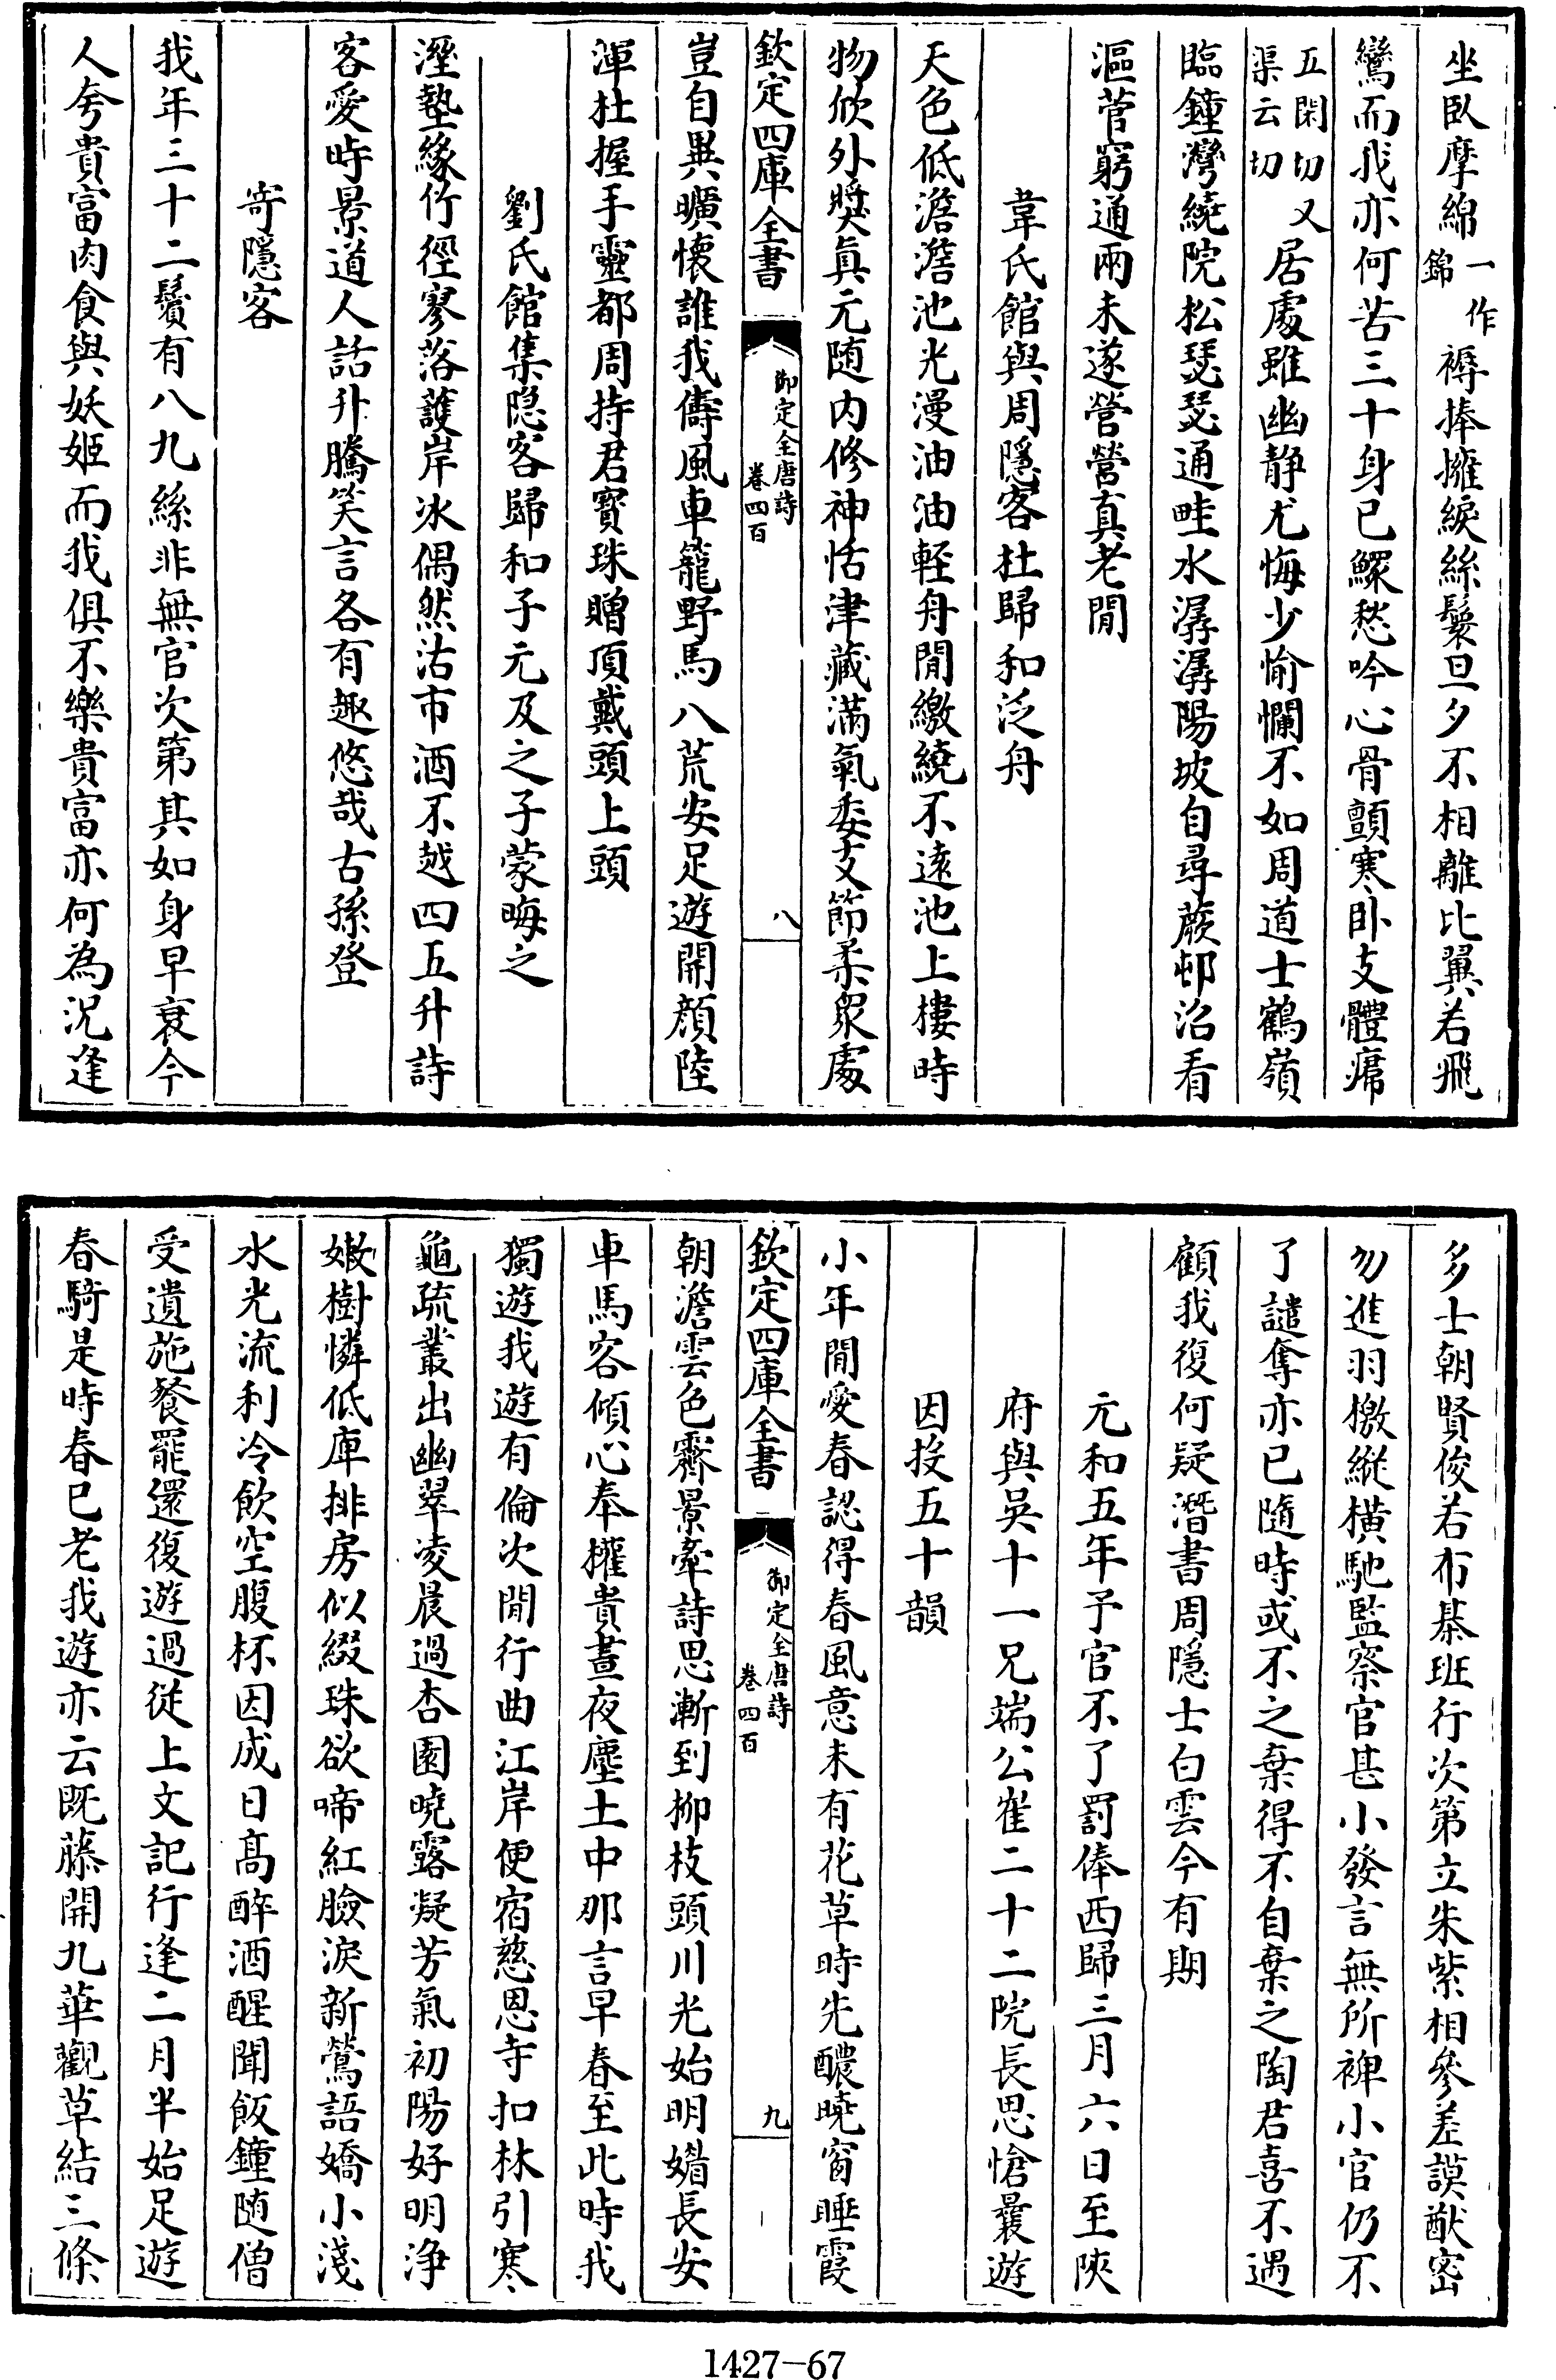 坐臥摩綿一作錦褥捧擁綟絲鬟旦夕不相離比翼若飛
鸞而我亦何苦三十身已鰥愁吟心骨顫寒卧支體㾕
五閑切又渠云切居處雖幽静尤悔少愉㦨不如周道士鶴嶺
臨鐘灣繞院松瑟瑟通畦水潺潺陽坡自尋蕨邨沼看
漚菅窮通兩未遂營營真老閒
韋氏館與周隱客杜歸和泛舟
天色低澹澹池光漫油油輕舟閒繳繞不遠池上樓時
物欣外奬真元随内修神恬津藏滿氣委支節柔衆處
欽定四庫全書
御定全唐詩
卷四百
八
豈自異曠懷誰我儔風車籠野馬八荒安足遊開顔陸
渾杜握手靈都周持君寳珠贈頂戴頭上頭
劉氏館集隐客歸和子元及之子蒙晦之
溼墊緣竹徑寥落護岸冰偶然沽市酒不越四五升詩
客愛時景道人話升騰笑言各有趣悠哉古孫登
寄隱客
我年三十二鬢有八九絲非無官次第其如身早衰今
人夸貴富肉食與妖姬而我俱不樂貴富亦何為況逢
多士朝賢俊若布棊班行次第立朱紫相參差謨猷密
勿進羽檄縱横馳監察官甚小發言無所裨小官仍不
了譴奪亦已隨時或不之棄得不自棄之陶君喜不遇
顧我復何疑潛書周隱士白雲今有期
元和五年予官不了罰俸西歸三月六日至陜
府與吳十一兄端公崔二十二院長思愴曩遊
因投五十韻
小年閒愛春認得春風意未有花草時先醲曉窗睡霞
欽定四庫全書
御定全唐詩
卷四百
九
朝澹雲色霽景牽詩思漸到柳枝頭川光始明媚長安
車馬客傾心奉權貴晝夜塵土中那言早春至此時我
獨遊我遊有倫次閒行曲江岸便宿慈恩寺扣林引寒
龜疏叢出幽翠凌晨過杏園曉露凝芳氣初陽好明浄
嫩樹憐低庳排房似綴珠欲啼紅臉淚新鶯語嬌小淺
水光流利冷飲空腹杯因成日髙醉酒醒聞飯鐘随僧
受遺施餐罷還復遊過從上文記行逢二月半始足遊
春騎是時春已老我遊亦云既藤開九華觀草結三條
1427—67